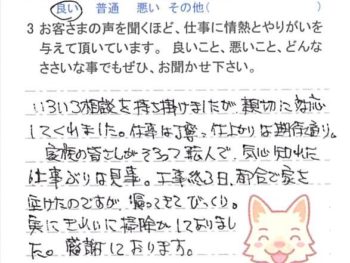 良い 普通 悪い その他( )
3 お客さまの声を聞くほど、仕事に情熱とやりがいを
与えて頂いています。良いこと、悪いこと、どんな
ささいな事でもぜひ、お聞かせ下さい。
いろいろ相談を持ち掛けましたが、親切に対応
してくれました。仕事は丁寧、仕上がりは期待通り。
家族の皆さんがそろって喜んで、気心知れた
仕事ぶりは見事。工事終了日、都合で家を
空けたのですが、帰ってきてびっくり。
実にきれいに掃除してありまし
た。感謝しております。